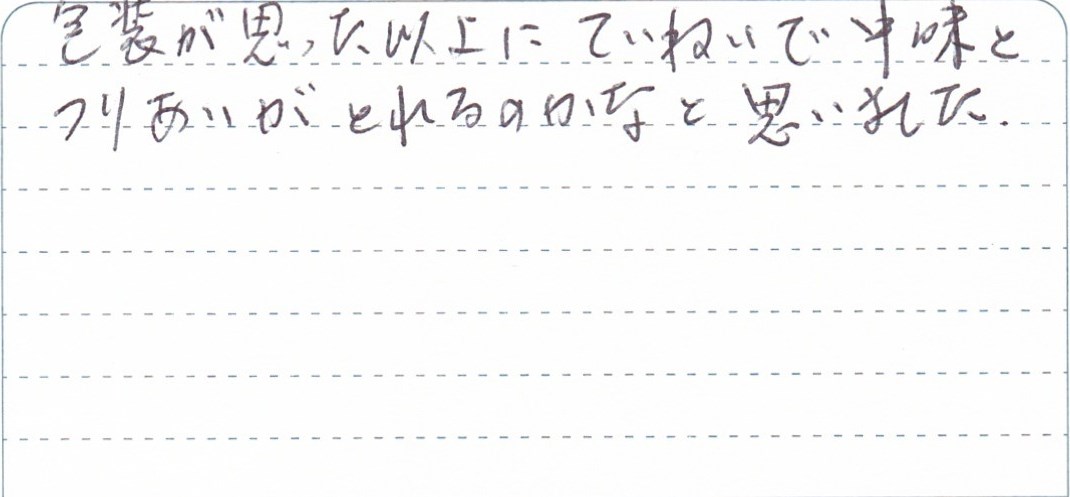 包装が思った以上にていねいで中味と
つりあいがとれるのかなと思いました.